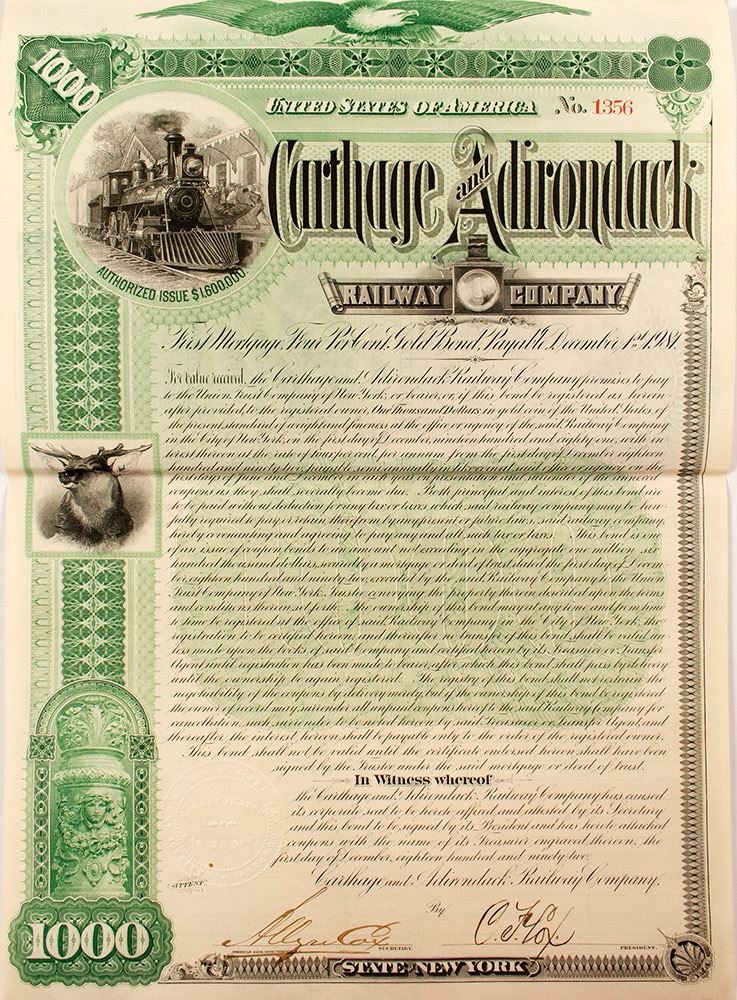 1000
UNITED STATES OF AMERICA No. 1356
Carthage and Adirondack
AUTHORIZED ISSUE $1,600,000
RAILWAY COMPANY
First Mortgage, Four Per Cent. Gold Bond, Payable December 1st, 1981
For value received, the Carthage and Adirondack Railway Company promises to pay
to the Union Trust Company of New York, or bearer, or, if this bond be registered as herein
after provided, to the registered owner, One Thousand Dollars, in gold coin of the United States of
the present standard of weight and fineness, at the office or agency of the said Railway Company
in the City of New York, on the first day of December, nineteen hundred and eighty-one, with in
terest thereon at the rate of four per cent. per annum, from the first day of December, eighteen
hundred and ninety two, payable semi-annually in like coin at said office or agency on the
first days of June and December in each year, on presentation and surrender of the
coupons as they shall severally become due. Both principal and interest of this bond are
to be paid without deduction for any tax or taxes which said railway company may be law
fully required to pay or retain therefrom by any present or future laws, said railway company
hereby covenanting and agreeing to pay any and all such tax or taxes. This bond is one
of an issue of coupon bonds to an amount not exceeding in the aggregate one million six
hundred thousand dollars, secured by a mortgage or deed of trust dated the first day of Decem
ber, eighteen hundred and ninety two, executed by the said Railway Company to the Union
Trust Company of New York, Trustee, conveying the property therein described upon the terms
and conditions thereof set forth. The ownership of this bond may at any time or from time to
time be registered at the office of said Railway Company in the City of New York, such
registration to be certified hereon, and thereafter no transfer of this bond shall be valid un
less made upon the books of said Company and certified hereon by its Treasurer or Transfer
Agent until registration has been made to bearer, after which this bond shall pass by delivery
until the ownership be again registered. The registry of this bond shall not restrain the
negotiability of the coupons by delivery merely, but if the ownership of this bond be registered
the owner of record may surrender all unpaid coupons hereof to the said Railway Company for
cancellation, such surrender to be noted hereon by said Treasurer or Transfer Agent, and
thereafter the interest hereon shall be payable only to the order of the registered owner.
This bond shall not be valid until the certificate endorsed hereon shall have been
signed by the Trustee under the said mortgage or deed of trust.
In Witness whereof
the Carthage and Adirondack Railway Company has caused
its corporate seal to be hereto affixed and attested by its Secretary
and this bond to be signed by its President and has hereto attached
coupons with the name of its Treasurer engraved thereon, the
first day of December, eighteen hundred and ninety two.
ATTEST
Carthage and Adirondack Railway Company,
By
SECRETARY. PRESIDENT.
1000
STATE OF NEW YORK